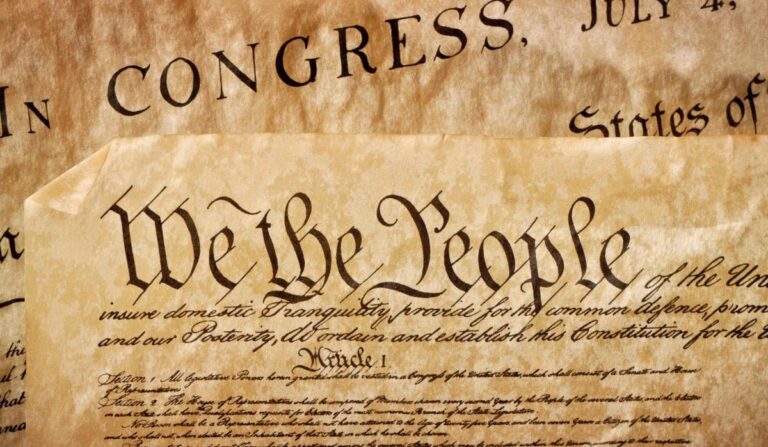 In CONGRESS, JULY 4,
States of
a
We the People of the Un
insure domestic Tranquility, provide for the common defence, prom
and our Posterity, do ordain and establish this Constitution for the
Article I
the
Section 1 All legislative Powers herein granted shall be vested in a Congress of the United States, which shall consist of a Senate and House
of Representatives.
Section 2 The House of Representatives shall be composed of Members chosen every second Year by the People of the several States, and the Electors
in each State shall have Qualifications requisite for Electors of the most numerous Branch of the State Legislature.
No Person shall be a Representative who shall not have attained to the Age of twenty five Years and been seven Years a Citizen of the United States,
and who shall not, when elected, be an Inhabitant of that State in which he shall be chosen.